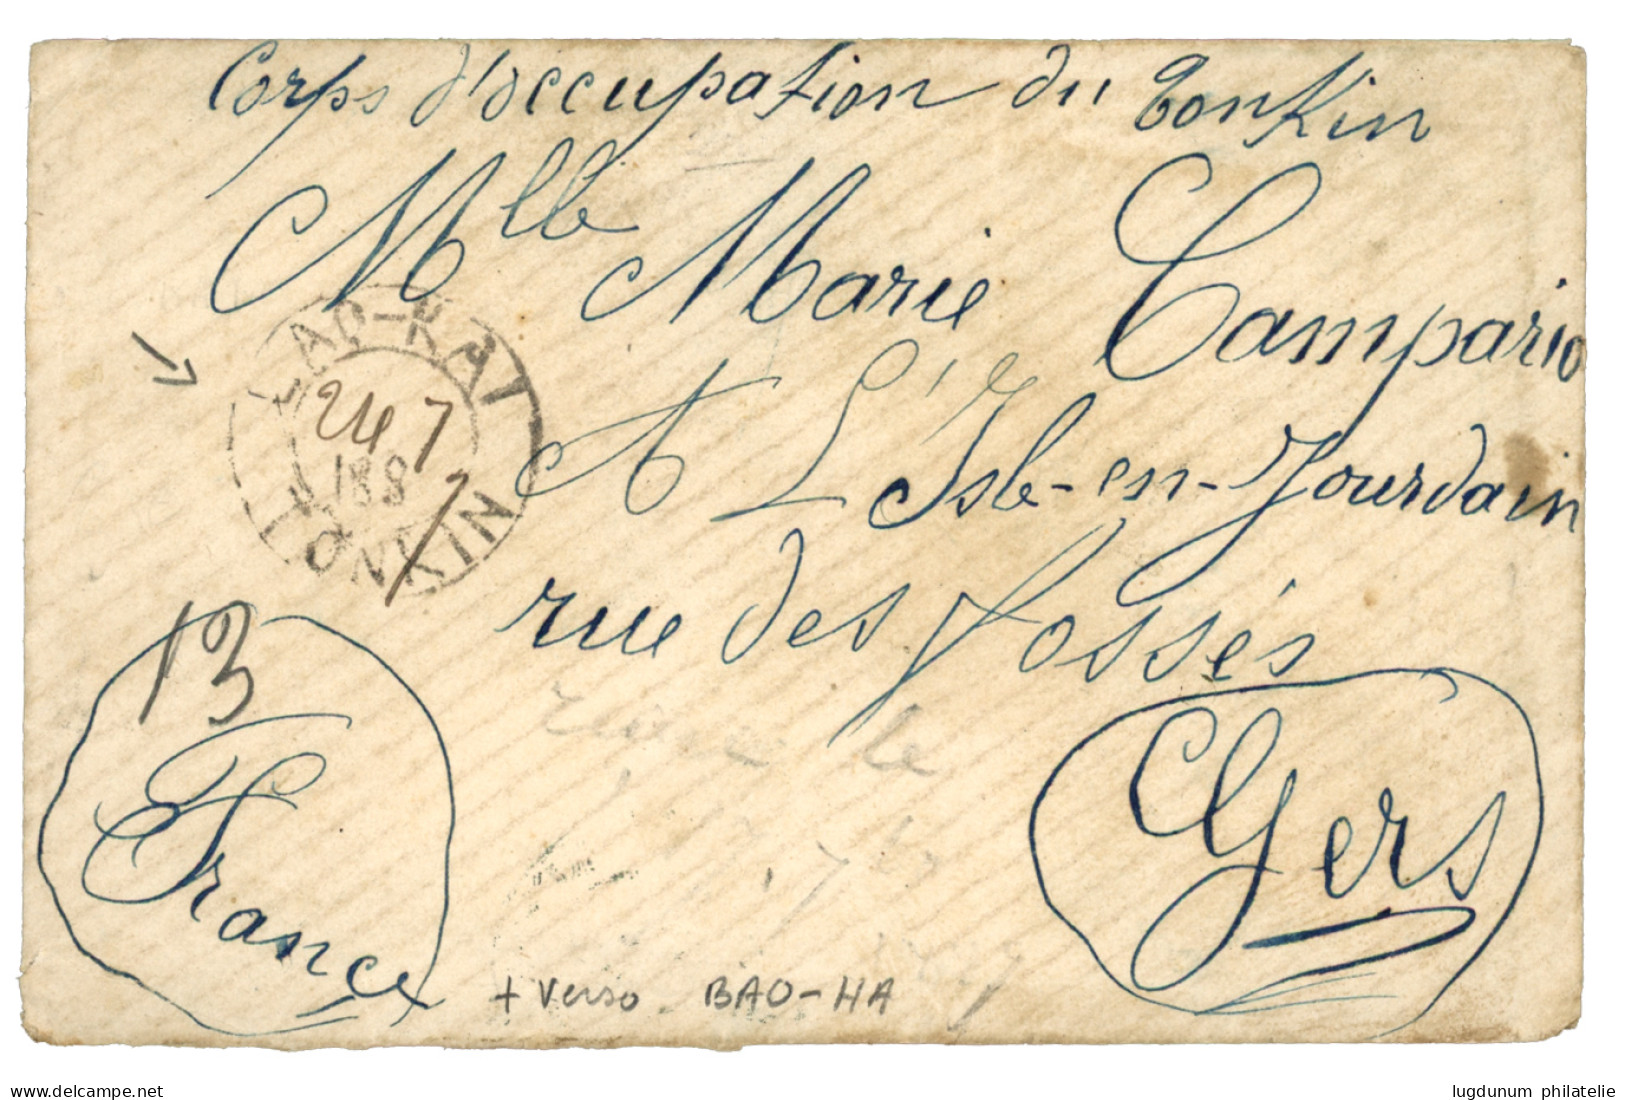 Corps d'occupation du Tonkin
Mlle Marie Campario
A L'Isle-en-Jourdain
rue des Fossés
Gers
France
13
LAO-KAI
24 7
188
TONKIN
+ verso BAO-HA
delcampe.net
lugdunum philatelie